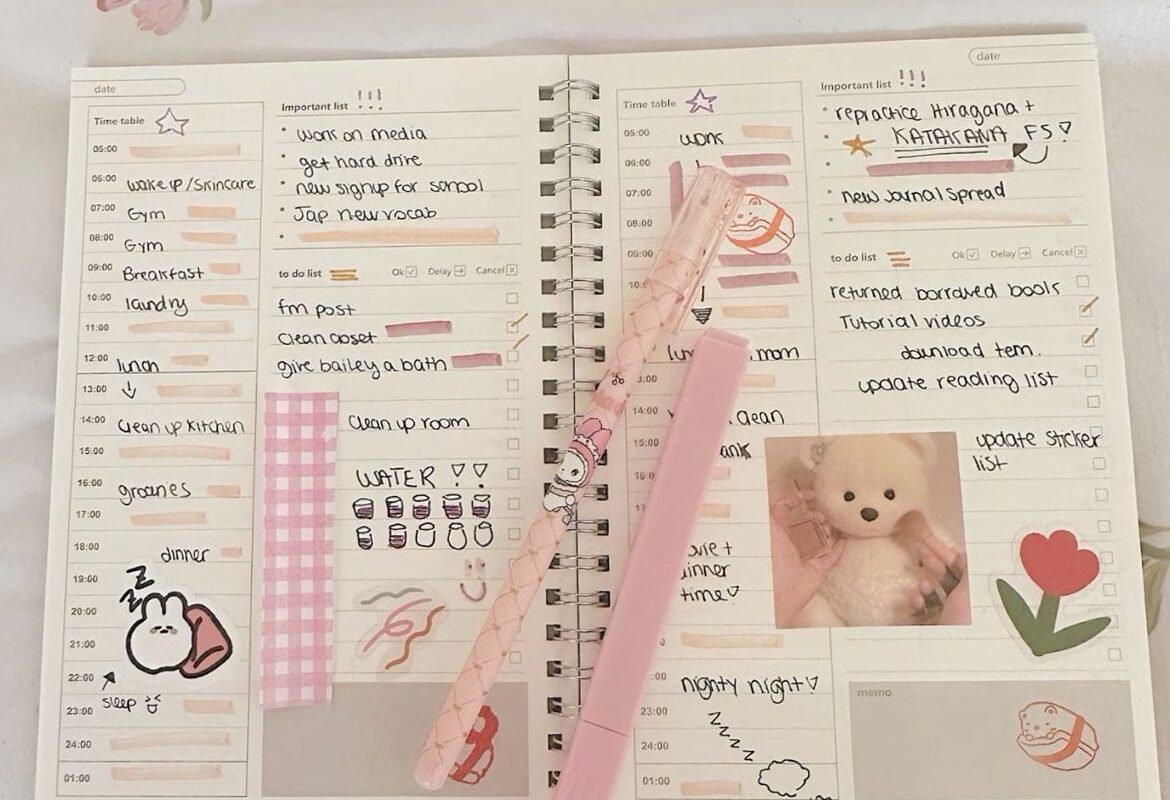 date
Time table
05:00
06:00 wake up/skincare
07:00 Gym
08:00 Gym
09:00 Breakfast
10:00 laundry
11:00
12:00 lunch
13:00
14:00 Clean up Kitchen
15:00
16:00 groceries
17:00
18:00 dinner
19:00
20:00
21:00
22:00
sleep
23:00
24:00
01:00
Z
Z
Z
Important list !!!
• work on media
• get hard drive
• new signup for school
• Jap new vocab
•
to do list Ok Delay Cancel
fm post
clean closet
give bailey a bath
Clean up room
WATER !!
date
Time table
05:00 work
06:00
07:00
08:00
09:00
mom
14:00 clean
15:00
16:00
17:00
time
nighty night
23:00
24:00
01:00
Z
Z
Z
Z
Important list !!!
• repractice Hiragana +
• KATAKANA FS!
•
new journal spread
•
to do list Ok Delay Cancel
returned borrowed books
Tutorial videos
download tem.
update reading list
update sticker
list
memo